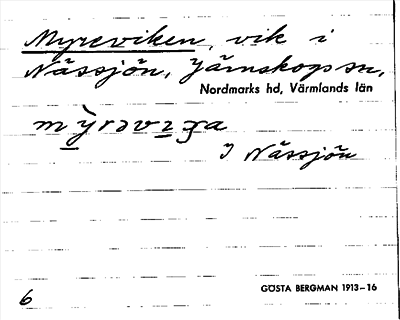 Myreviken, vik i
Nässjön, Järnskogs sn,
Nordmarks hd, Värmlands län
I Nässjön
6
GÖSTA BERGMAN 1913–16